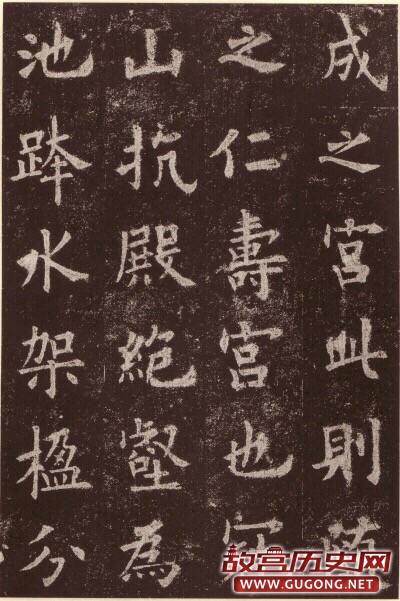 成之宮此則隨
之仁壽宮也冠
山抗殿絶壑為
池跨水架楹分
故宫历史网
WWW.GUGONG.NET